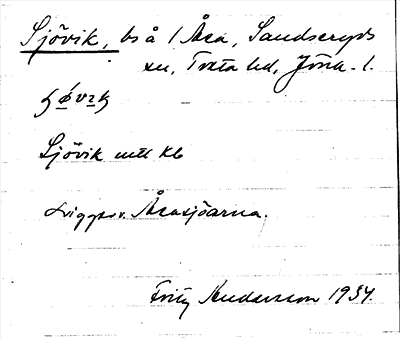 Sjövik, bs å 1 Åsa, Sandseryds
sn, Tveta hd, Jönk. l.
Sjövik utt kb
Ligger v. Åsasjöarna.
Fritz Andersson 1934.